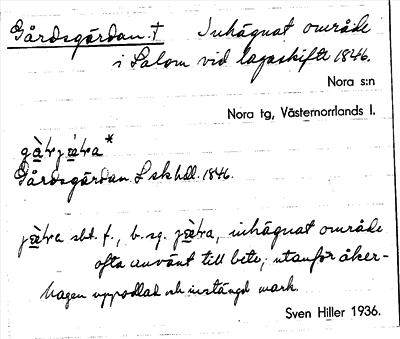 Gårdsgärdan. † Inhägnat område
i Salom vid lagaskifte 1846.
Nora s:n
Nora tg, Västernorrlands l.
Gårdsgärdan. L sk hdl. 1846.
sbt. f., b. sg. inhägnat område
ofta använt till bete, utanför åker-
hagen uppodlad och instängd mark.
Sven Hiller 1936.